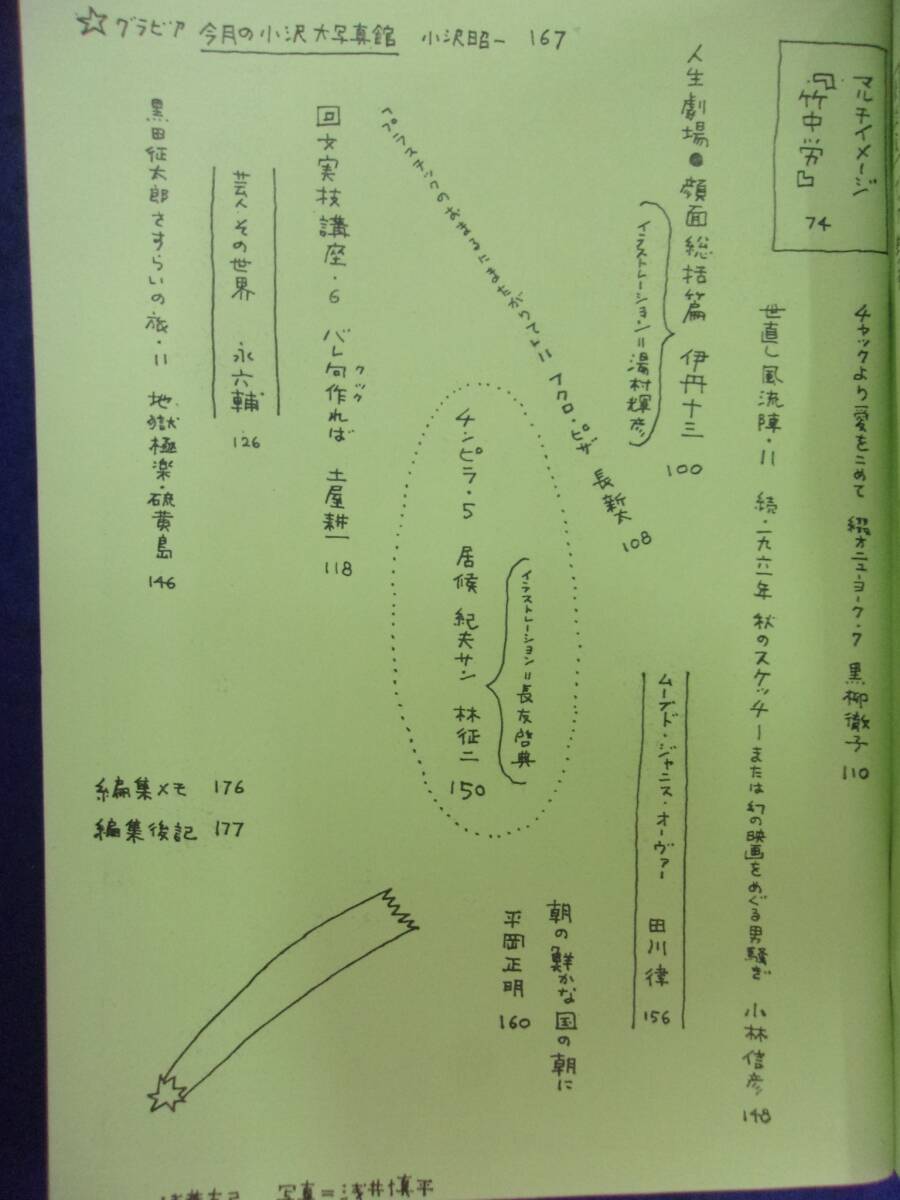 ☆グラビア 今月の小沢大写真館 小沢昭一 167
マルチイメージ
『竹中労』 74
チャックより愛をこめて 綴オニューヨーク・7 黒柳徹子 110
世直し風流陣・11 続・一九六一年 秋のスケッチーまたは「幻の映画」をめぐる男騒ぎ 小林信彦 148
人生劇場●顔面総括篇 伊丹十三 100
イラストレーション=湯村輝彦
ムーブド・ジャニス・オーヴァー 田川律 156
プラスチックのおまるにまたがりてよ=イクロ・ピザ 長新太 108
朝の鮮かな国の朝に
平岡正明 160
イラストレーション=長友啓典
チンピラ・5 居候 紀夫サン 林征二 150
回文実技講座・6 バレ句作れば 土屋耕一 118
クック
芸人その世界 永六輔 126
黒田征太郎さすらいの旅・11 地獄極楽・硫黄島 146
編集メモ 176
編集後記 177
写真=浅井慎平